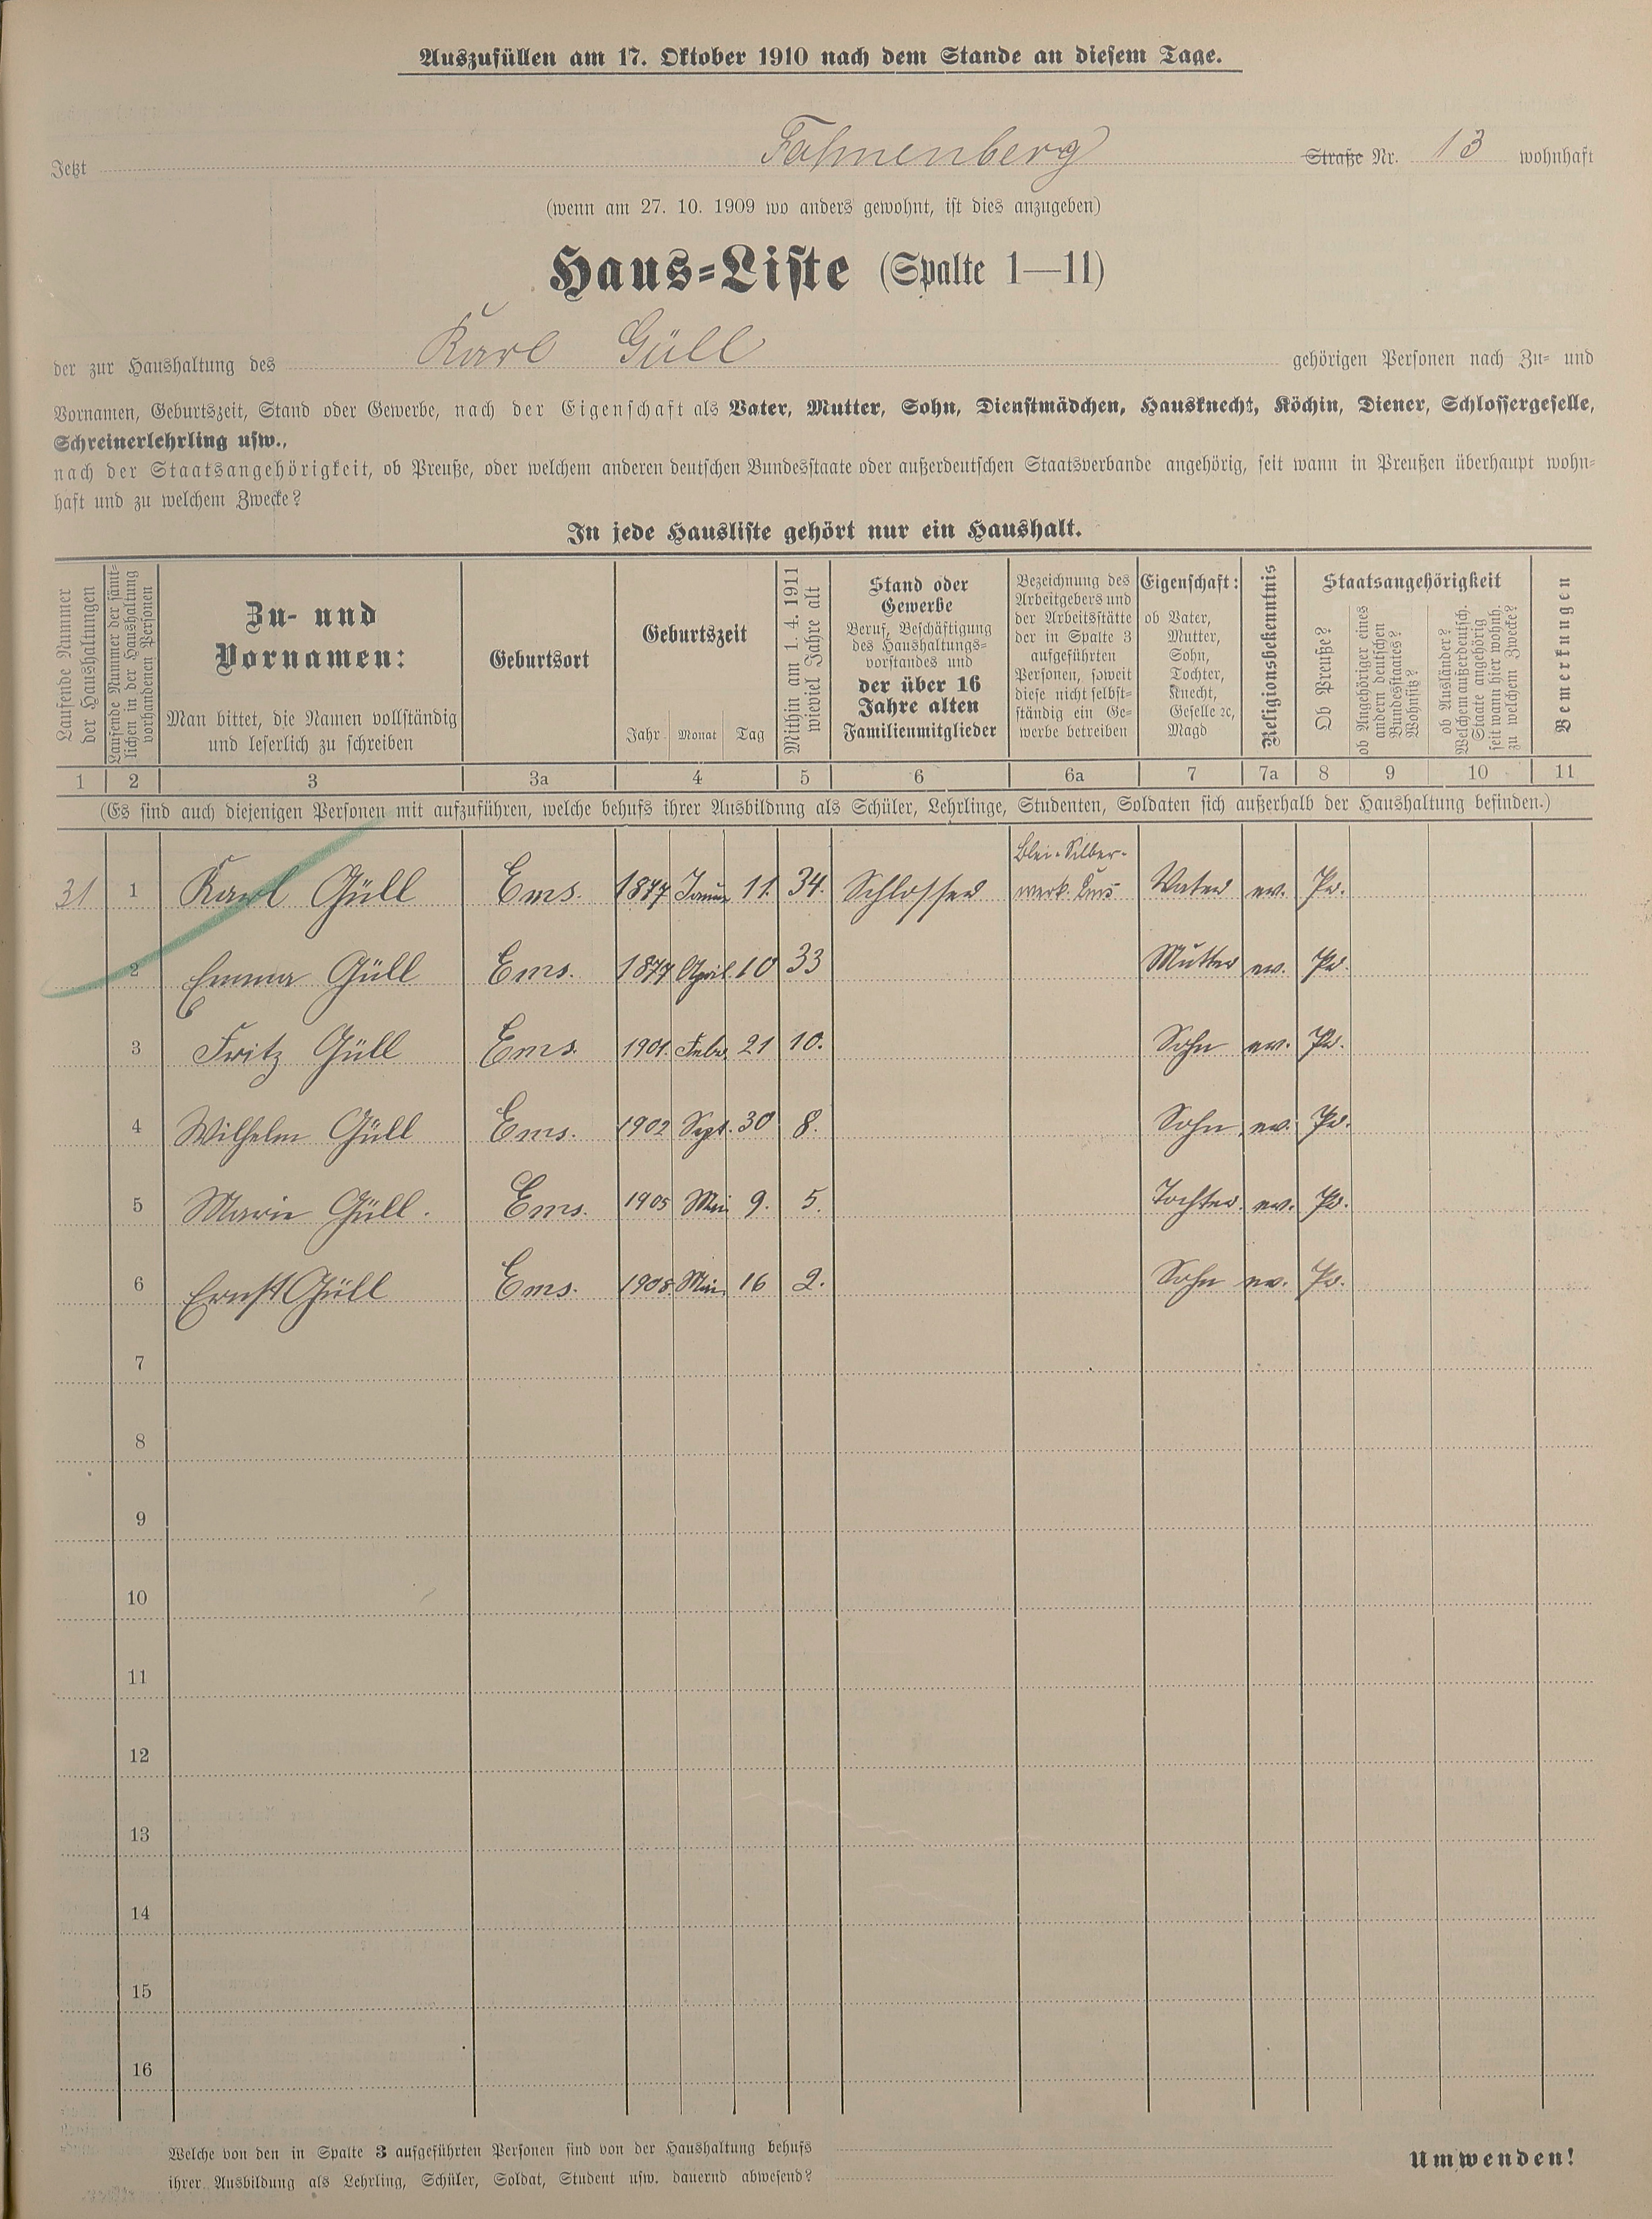 Auszufüllen am 17. Oktober 1910 nach dem Stande an diesem Tage.
Jetzt Fahnenberg Straße Nr. 13 wohnhaft
(wenn am 27. 10. 1909 wo anders gewohnt, ist dies anzugeben)
Haus-Liste (Spalte 1—11)
der zur Haushaltung des Karl Güll gehörigen Personen nach Zu- und
Vornamen, Geburtszeit, Stand oder Gewerbe, nach der Eigenschaft als Vater, Mutter, Sohn, Dienstmädchen, Hausknecht, Köchin, Diener, Schlossergeselle,
Schreinerlehrling usw.,
nach der Staatsangehörigkeit, ob Preuße, oder welchem anderen deutschen Bundesstaate oder außerdeutschen Staatsverbande angehörig, seit wann in Preußen überhaupt wohn-
haft und zu welchem Zwecke?
In jede Hausliste gehört nur ein Haushalt.
Laufende Nummer
der Haushaltungen
Laufende Nummer der sämt-
lichen in der Haushaltung
vorhandenen Personen
Zu- und
Vornamen:
Man bittet, die Namen vollständig
und leserlich zu schreiben
Geburtsort
Geburtszeit
Jahr Monat Tag
Mithin am 1. 4. 1911
wieviel Jahre alt
Stand oder
Gewerbe
Beruf, Beschäftigung
des Haushaltungs-
vorstandes und
der über 16
Jahre alten
Familienmitglieder
Bezeichnung des
Arbeitgebers und
der Arbeitsstätte
der in Spalte 3
aufgeführten
Personen, soweit
diese nicht selbst-
ständig ein Ge-
werbe betreiben
Eigenschaft:
ob Vater,
Mutter,
Sohn,
Tochter,
Knecht,
Geselle ꝛc,
Magd
Religionsbekenntnis
Staatsangehörigkeit
Ob Preuße?
ob Angehöriger eines
andern deutschen
Bundesstaates?
Wohnsitz?
ob Ausländer?
Welchem außerdeutsch.
Staate angehörig
seit wann hier wohnh.
zu welchem Zwecke?
Bemerkungen
1 2 3 3a 4 5 6 6a 7 7a 8 9 10 11
(Es sind auch diejenigen Personen mit aufzuführen, welche behufs ihrer Ausbildung als Schüler, Lehrlinge, Studenten, Soldaten sich außerhalb der Haushaltung befinden.)
Blei-Silber-
31 1 Karl Güll Ems. 1877 Januar 11. 34. Schlosser werk Ems Vater ev. Pr.
2 Emma Güll Ems. 1877 April 10 33 Mutter ev. Pr.
3 Fritz Güll Ems. 1901. Febr. 21 10. Sohn ev. Pr.
4 Wilhelm Güll Ems. 1902 Sept. 30 8. Sohn ev. Pr.
5 Marie Güll. Ems. 1905 Mai 9. 5. Tochter ev. Pr.
6 Ernst Güll Ems. 1908 16 2. Sohn ev. Pr.
7
8
9
10
11
12
13
14
15
16
Welche von den in Spalte 3 aufgeführten Personen sind von der Haushaltung behufs
ihrer Ausbildung als Lehrling, Schüler, Soldat, Student usw. dauernd abwesend?
Umwenden!